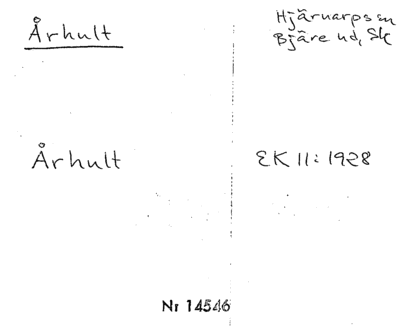 Århult
Hjärnarps sn
Bjäre hd, Sk
Århult
EK 11: 1928
Nr 14546